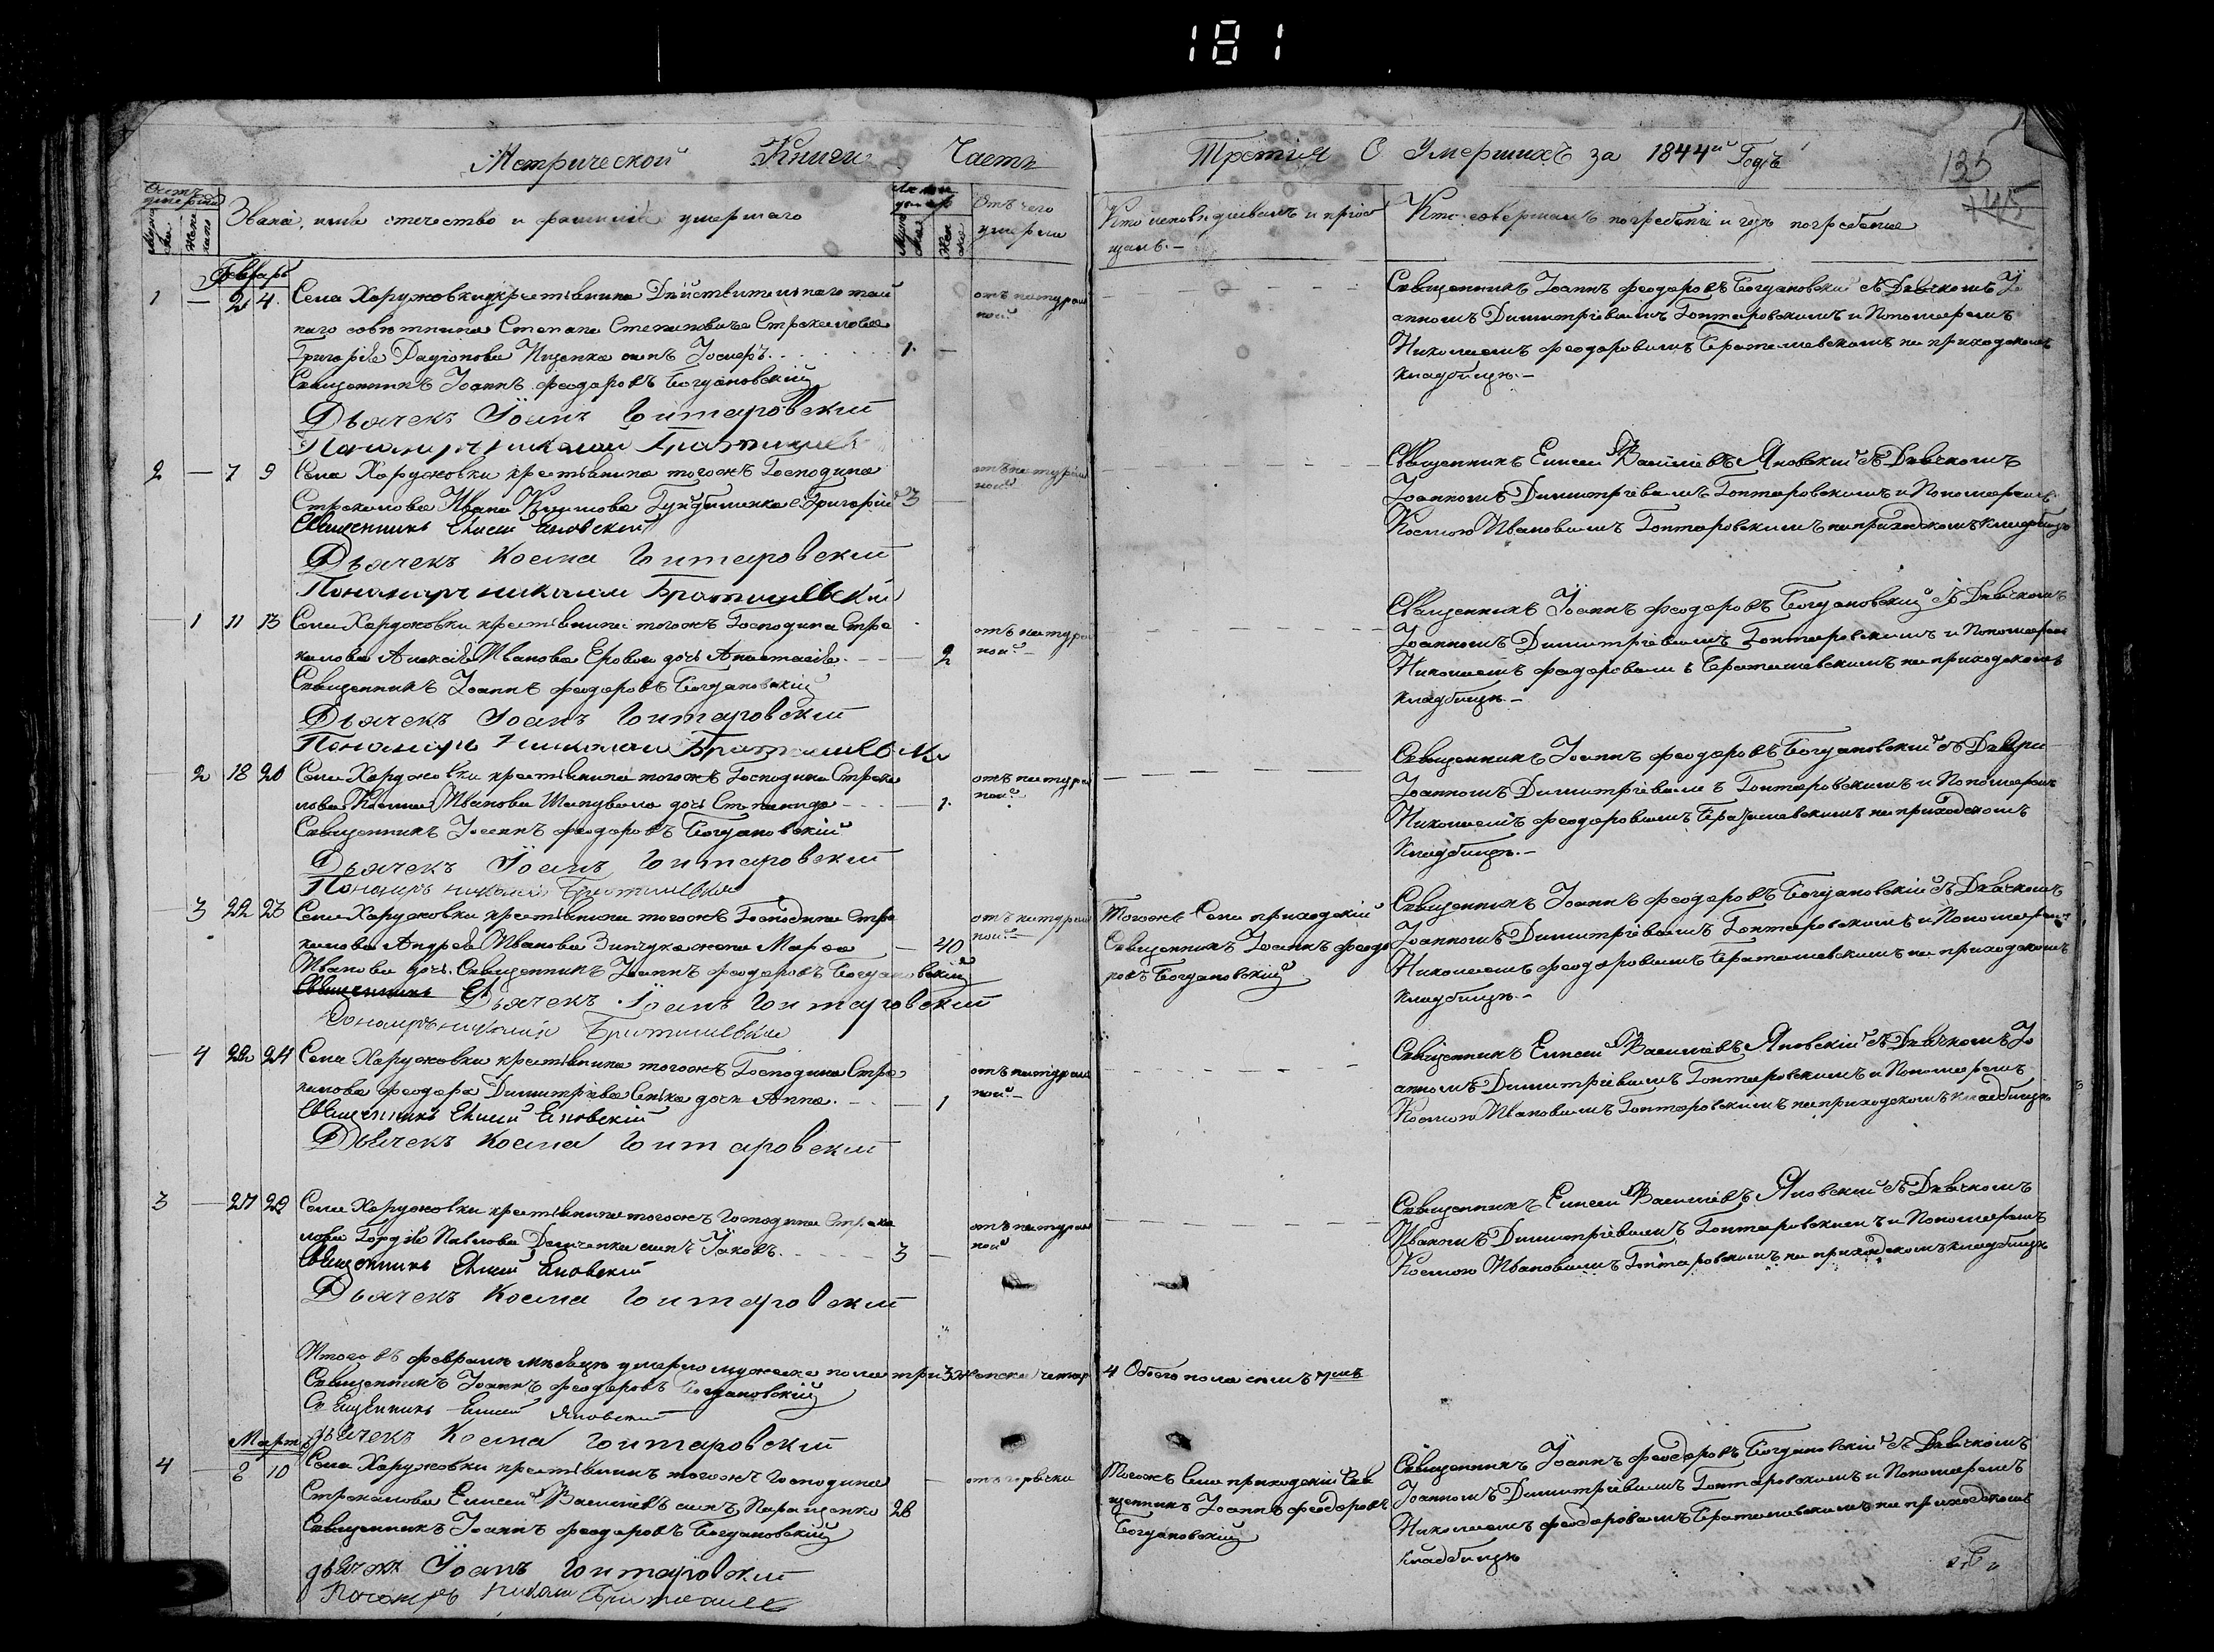 181
Метрической Книги Часть
Третия О Умершихъ за 1844й Годъ
135
145
Счетъ умершихъ
Мужеска
Женска
Званіе, имя отечество и фамилія умершаго
Лета умер
Муже ска
Жен ска
Отъ чего умерли
Кто исповедывалъ и приоб
щалъ.-
Кто совершалъ погребеніе и где погребение
Февраль
1 — 2 4
Села Харуховки крестянина Действительнаго тай
наго советника Степана Степановича Стрекалова
Григорія Пащенка сынъ Іосифъ
1. —
отъ натурал
ной
Священникъ Іоаннъ феодоровъ Богдановскій
Дьячекъ Іоанъ Гонтаровский
Пономарь Николай Братишев
Священникъ Іоаннъ феодоровъ Богдановскій съ Дьячкомъ Іо
анномъ Димитріевымъ Гонтаровскимъ и Пономаремъ
Николаемъ феодоровымъ Братишевскимъ на приходскомъ
кладбище.-
2 — 7 9
Села Харуховки крестянина тогожъ Господина
Стрекалова Ивана Григорій
3 —
отъ натурал
ной
Священникъ Елисей Яновский
Дьячекъ Косма Гонтаровский
Пономарь Николай Братишевский
Священникъ Елисей Васильевъ Яновскій съ Дьячкомъ
Іоанномъ Димитріевымъ Гонтаровскимъ и Пономаремъ
Космою Ивановымъ Гонтаровскимъ на приходскомъ кладбище
— 1 11 13
Села Харуховки крестянина тогожъ Господина Стре
калова Алексія Иванова дочь Анастасія
— 2
отъ натурал
ной
Священникъ Іоаннъ феодоровъ Богдановскій
Дьячекъ Іоанъ Гонтаровский
Пономарь Николай Братишевский
Священникъ Іоаннъ феодоровъ Богдановскій съ Дьячкомъ
Іоанномъ Димитріевымъ Гонтаровскимъ и Пономарем
Николаемъ феодоровымъ Братишевскимъ на приходскомъ
кладбище.-
2 18 20
Села Харуховки крестянина тогожъ Господина Стрека
лова Иванова Шаповала дочь Степанида
— 1.
отъ натурал
ной
Священникъ Іоаннъ феодоровъ Богдановскій
Дьячекъ Іоанъ Гонтаровский
Пономарь Николай Братишевский
Священникъ Іоаннъ феодоровъ Богдановскій съ
Іоанномъ Димитріевымъ Гонтаровскимъ и Пономаремъ
Николаемъ феодоровымъ Братишевскимъ на приходскомъ
кладбище.-
— 3 22 23
Села Харуховки крестянина тогожъ Господина Стре
калова Андрея Иванова Зинчука жена Марфа
Иванова дочь. Священникъ Іоаннъ феодоровъ Богдановскій
— 40
отъ натурал
ной
Дьячекъ Іоанъ Гонтаровский
Пономарь Николай Братишевский
Тогожъ Села приходскій
Священникъ Іоаннъ феодо
ровъ Богдановскій
Священникъ Іоаннъ феодоровъ Богдановскій съ Дьячкомъ
Іоанномъ Димитріевымъ Гонтаровскимъ и Пономаремъ
Николаемъ феодоровымъ Братишевскимъ на приходскомъ
кладбище.-
— 4 22 24
Села Харуховки крестянина тогожъ Господина Стре
калова феодора Димитріева дочь Анна.
— 1
отъ натурал
ной
Священникъ Елисей Яновский
Дьячекъ Косма Гонтаровский
Священникъ Елисей Васильевъ Яновскій съ Дьячкомъ Іо
анномъ Димитріевымъ Гонтаровскимъ и Пономаремъ
Космою Ивановымъ Гонтаровскимъ на приходскомъ кладбище
3 — 27 29
Села Харуховки крестянина тогожъ Господина Стрека
лова Гордія Павлова Демченка сынъ Іаковъ.
3 —
отъ натурал
ной
Священникъ Елисей Яновский
Дьячекъ Косма Гонтаровский
Священникъ Елисей Васильевъ Яновскій съ Дьячкомъ
Иваномъ Димитріевымъ Гонтаровскимъ и Пономаремъ
Космою Ивановымъ Гонтаровскимъ на приходскомъ кладбище
Итого въ феврале месяце умерло мужеска пола три 3 женска четыр
4 Обоего пола семъ 7мъ
Священникъ Іоаннъ феодоровъ Богдановскій
Священникъ Елисей Яновский
Дьячекъ Косма Гонтаровский
Мартъ
4 — 8 10
Села Харуховки крестянинъ тогожъ Господина
Стрекалова Елисей Васильевъ сынъ Паращенко
28 —
отъ горячки
Священникъ Іоаннъ феодоровъ Богдановскій
Дьячекъ Іоанъ Гонтаровский
Пономарь Николай Братишев
Тогожъ Села приходскій Свя
щенникъ Іоаннъ феодоровъ
Богдановскій
Священникъ Іоаннъ феодоровъ Богдановскій съ Дьячкомъ
Іоанномъ Димитріевымъ Гонтаровскимъ и Пономаремъ
Николаемъ феодоровымъ Братишевскимъ на приходскомъ
кладбище